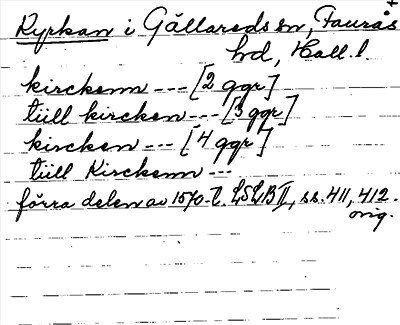 Kyrkan i Gällareds sn, Faurås
hd, Hall. l.
kirckenn --- [2 ggr]
tiill kircken --- [3 ggr]
kircken --- [4 ggr]
tiill Kirckenn ---
förra delen av 1570-t. LSLB II, ss. 411, 412.
orig.